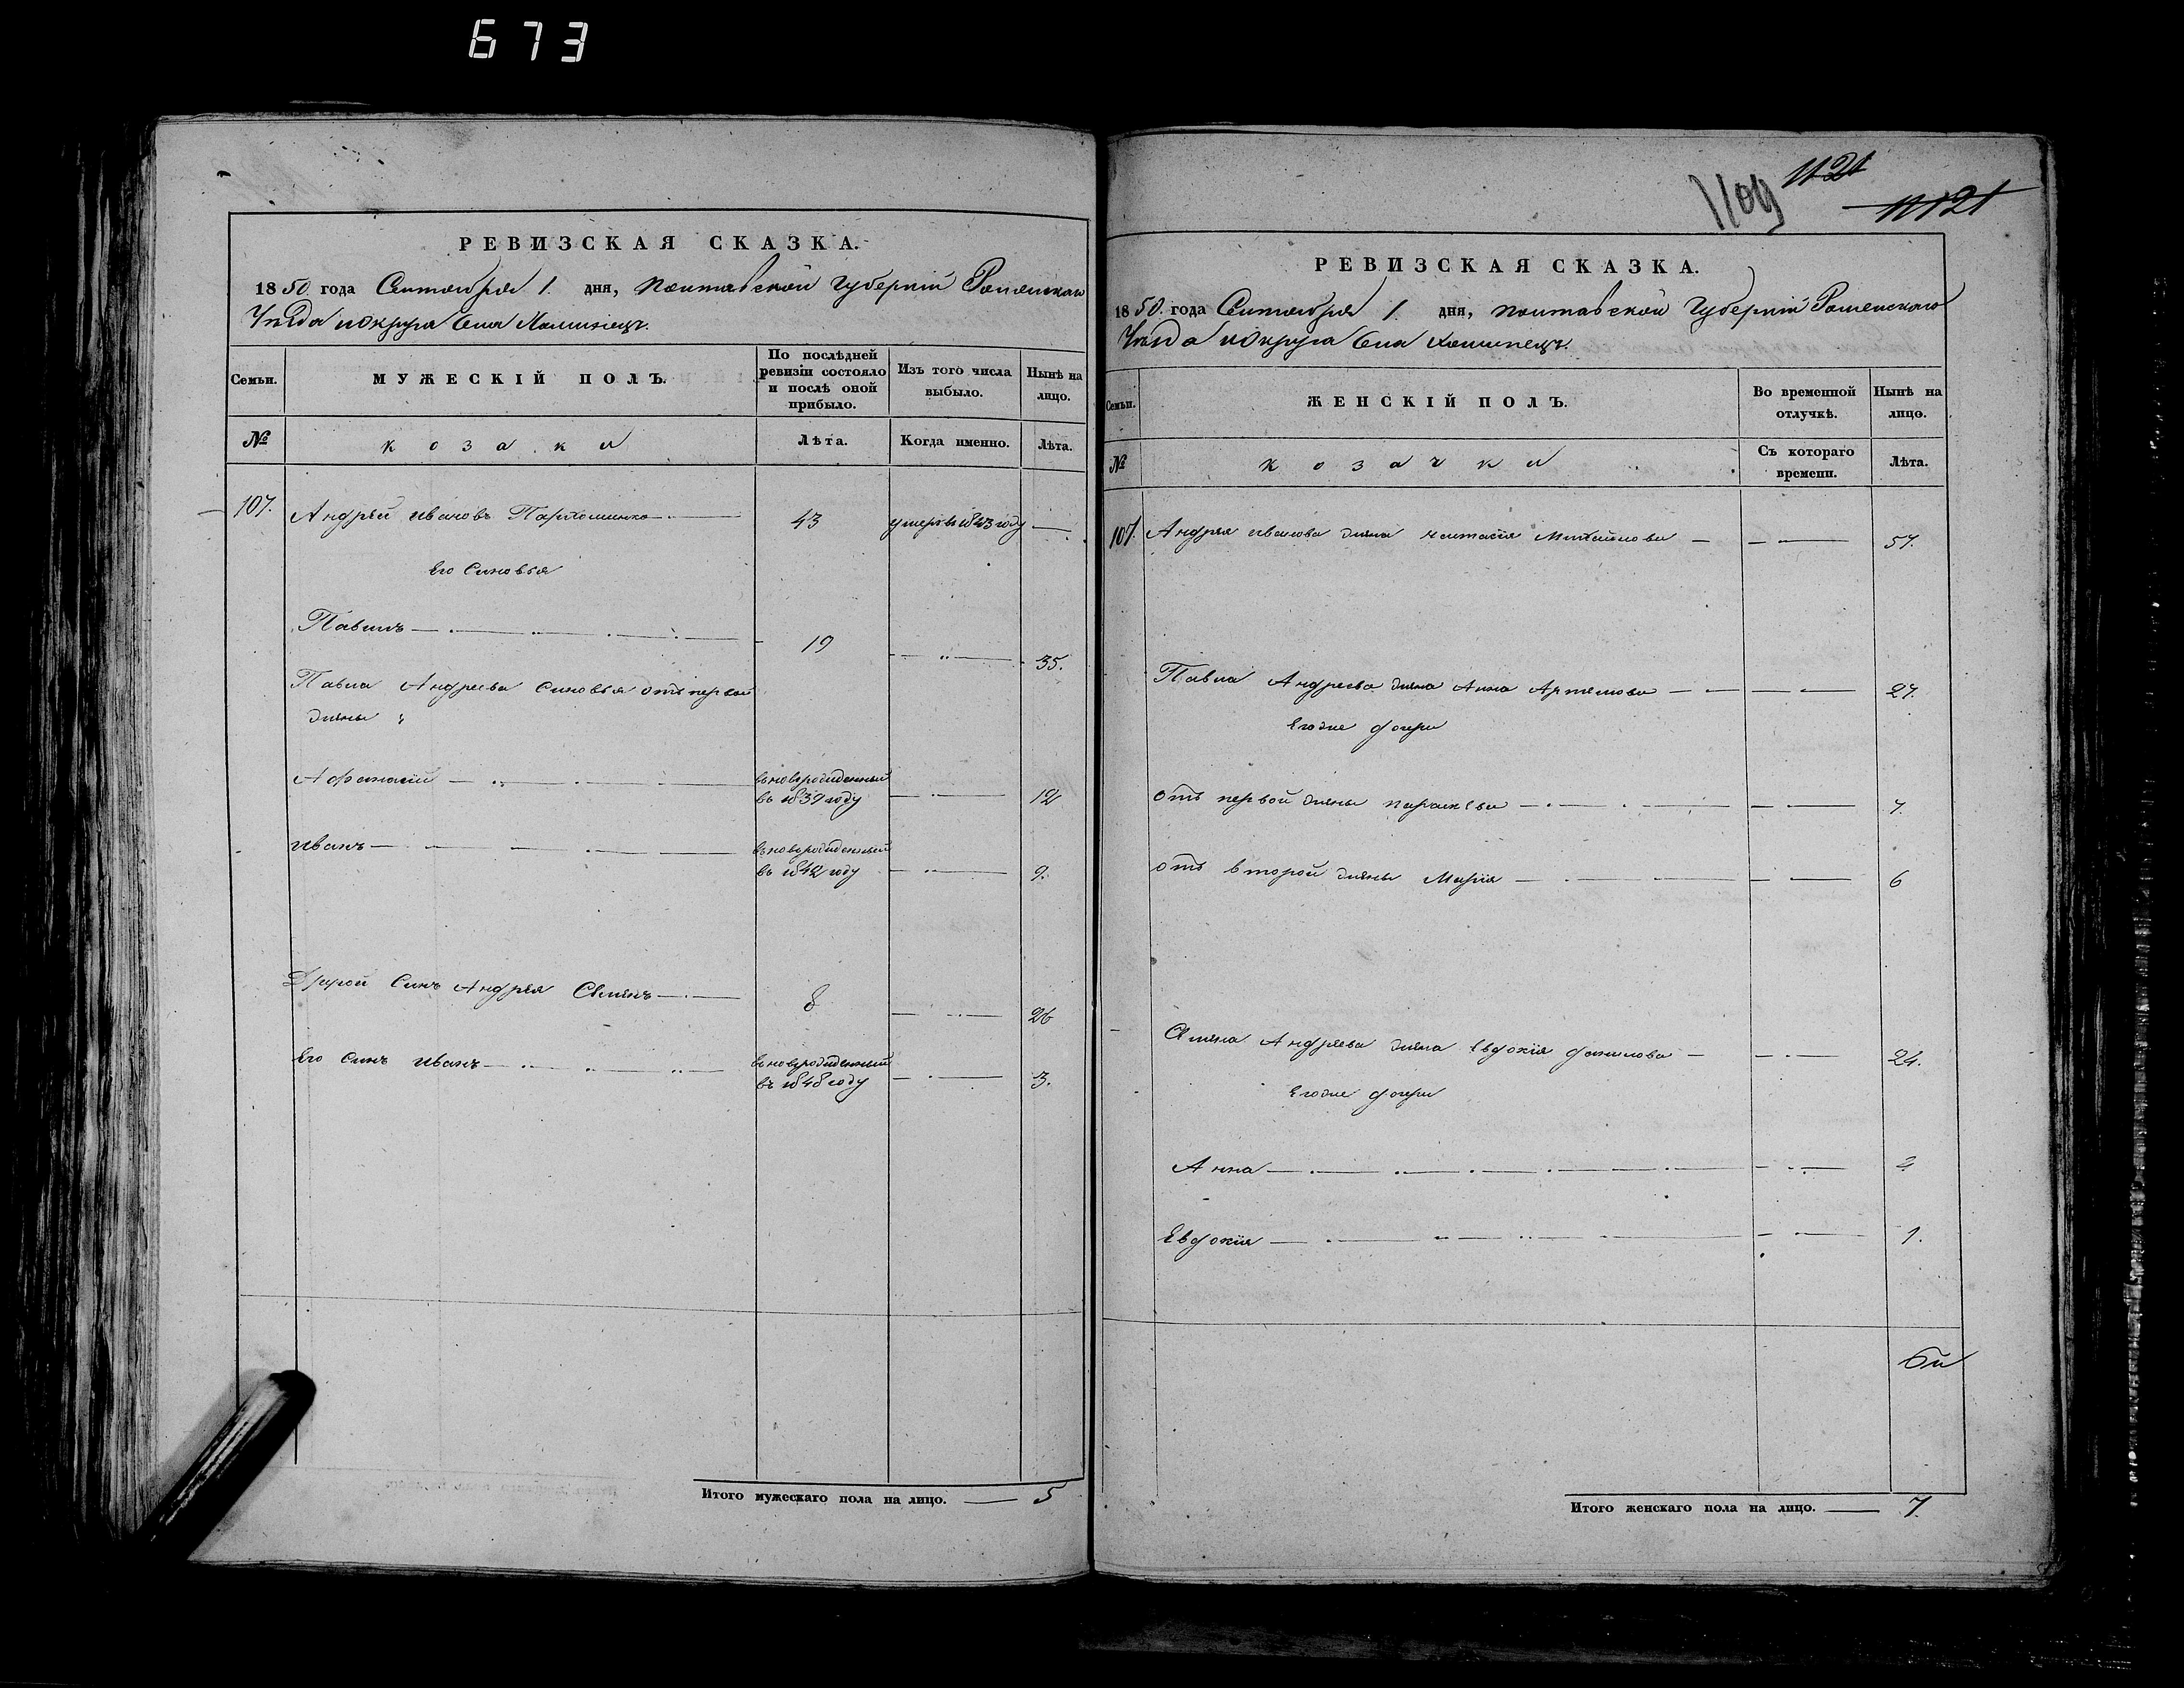 673
РЕВИЗСКАЯ СКАЗКА.
1850 года Сентября 1. дня, Полтавской Губерніи Роменскаго
Уѣзда и округа Села
Семьи.
МУЖЕСКІЙ ПОЛЪ.
По послѣдней ревизіи состояло и послѣ оной прибыло.
Изъ того числа выбыло.
Нынѣ на лицо.
№
козаки
Лѣта.
Когда именно.
Лѣта.
107. Андрей Ивановъ Пархоменко 43 умеръ въ 1843 году
Его Синовья
Павилъ 19 35.
Павла Андреева Синовья отъ первой
жены
Афанасий вновърожденный
въ 1839 году 12
Иванъ вновърожденный
въ 1842 году 9.
Другой Синъ Андрея Семенъ 8 26
Его Синъ Иванъ вновърожденный
въ 1848 году 3.
Итого мужескаго пола на лицо. 5
1109 1121
1121
РЕВИЗСКАЯ СКАЗКА.
1850. года Сентября 1. дня, Полтавской Губерніи Роменскаго
Уѣзда и округа Села
Семьи.
ЖЕНСКІЙ ПОЛЪ.
Во временной отлучкѣ.
Нынѣ на лицо.
№
козачки
Съ котораго времени.
Лѣта.
107. Андрея Иванова жена Настасія Михайлова 57.
Павла Андреева жена Анна Артемова 27.
Егоже дочери
отъ первой жены Параскева 7.
отъ второй жены Марія 6
Семена Андреева жена Евдокія Данилова 24.
Егоже дочери
Анна
Евдокія 1.
Итого женскаго пола на лицо. 7.